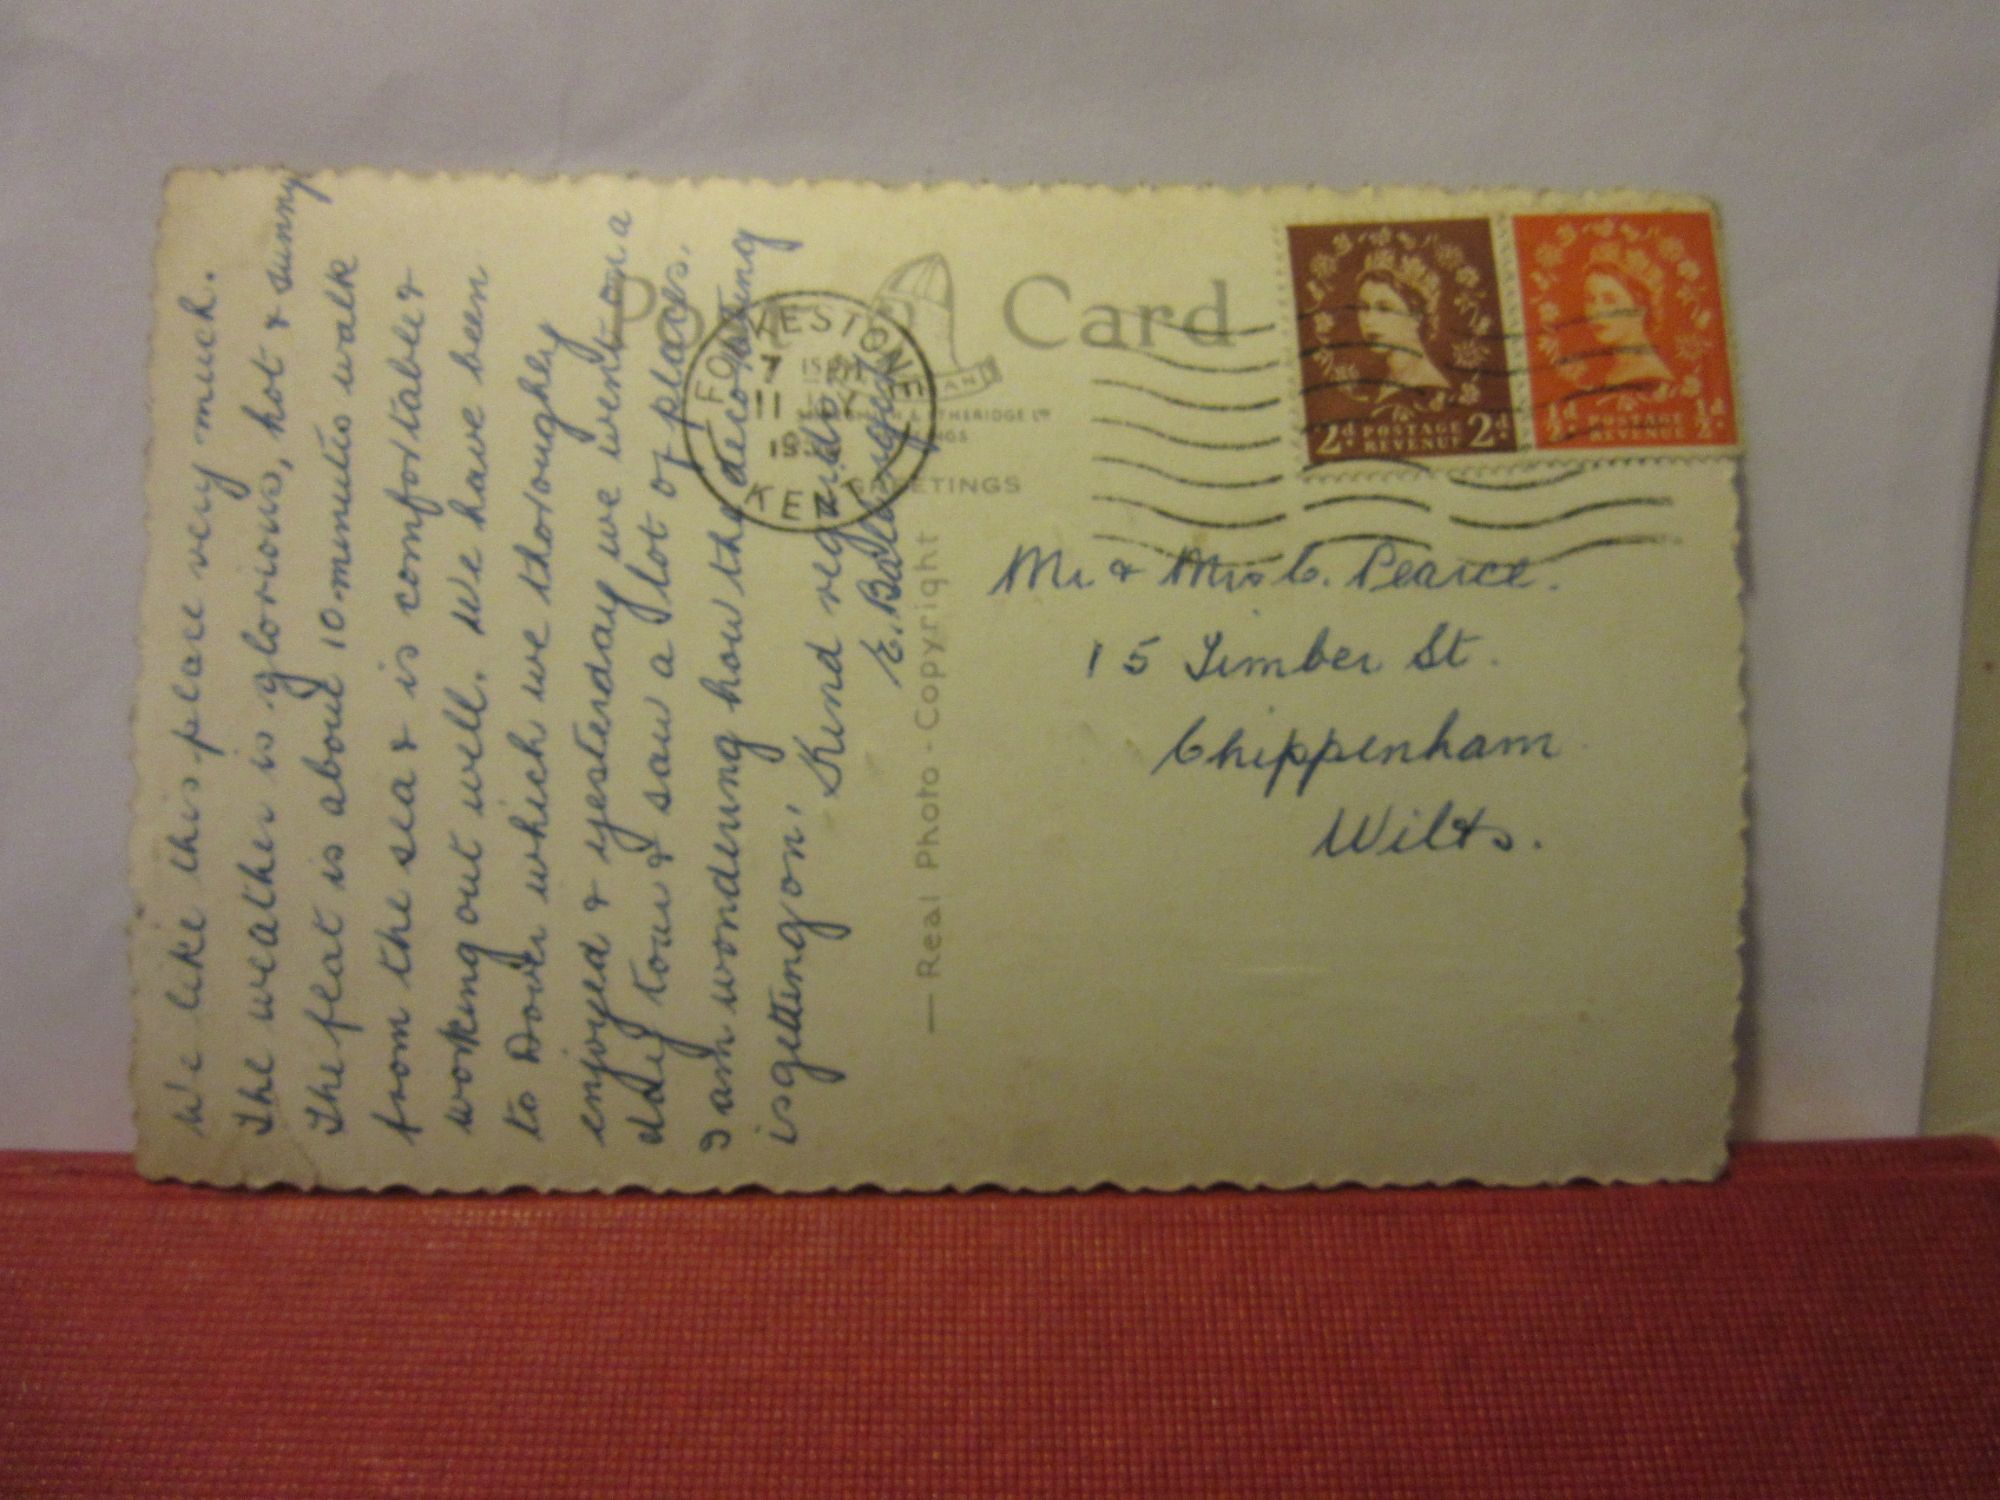 We like this place very much.
The weather is glorious, hot & sunny
The flat is about 10 minutes walk
from the sea & is comfortable &
working out well. We have been
to Dover which we thoroughly
enjoyed & yesterday we went on a
day tour & saw a lot of places.
I am wondering how the decorating
is getting on.
Kind regards
E.
Post Card
FOLKESTONE
7
11
KENT
& ETHERIDGE LTD
GREETINGS
— Real Photo - Copyright
2d POSTAGE REVENUE 2d
½d POSTAGE REVENUE ½d
Mr. & Mrs C. Pearce.
15 Timber St.
Chippenham
Wilts.